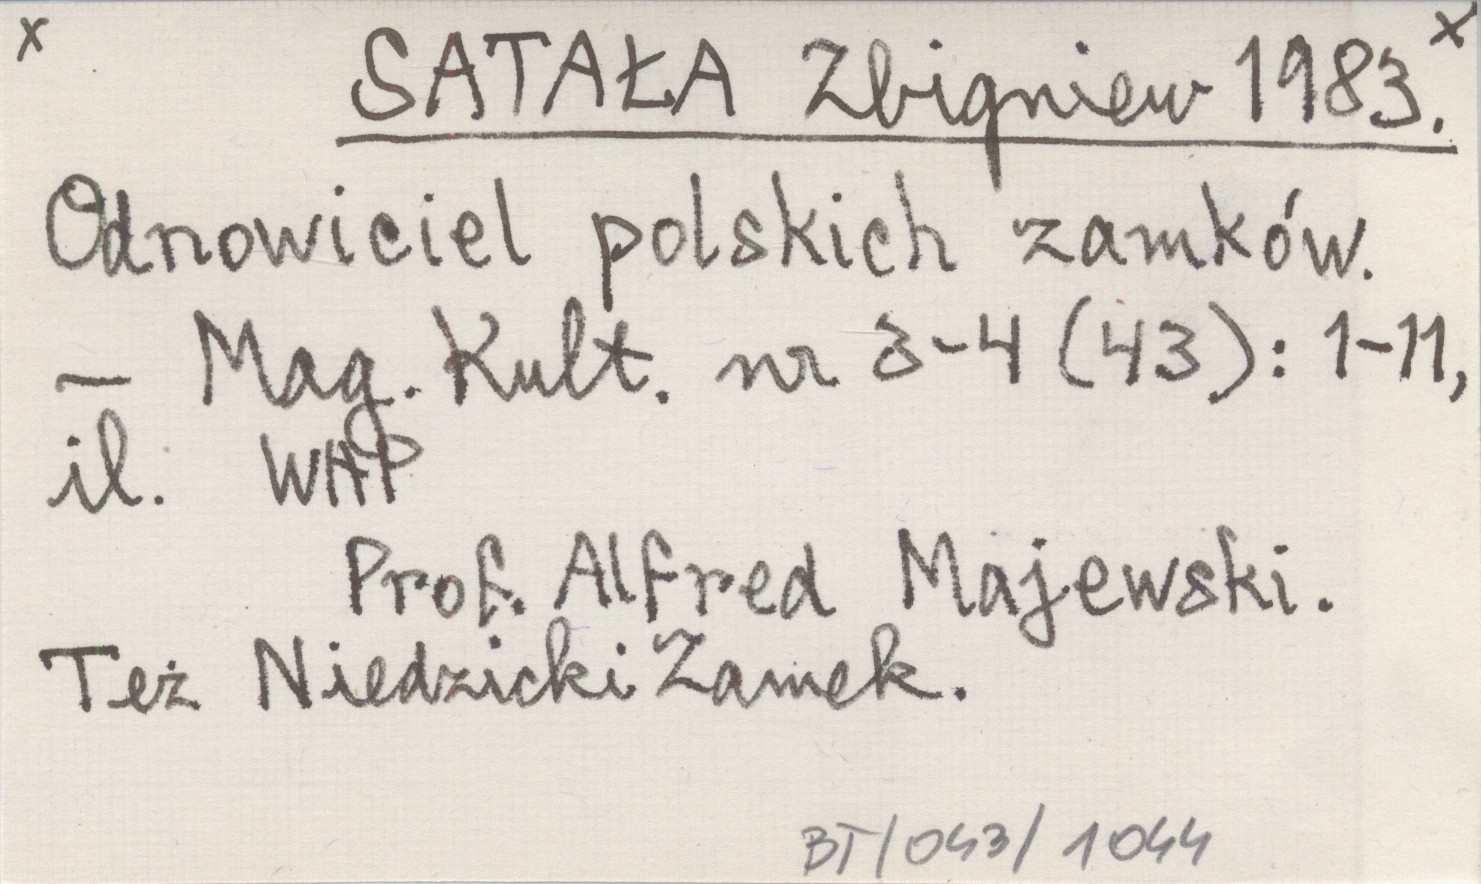 x SATAŁA Zbigniew 1983. x
Odnowiciel polskich zamków.
— Mag. Kult. nr 3-4 (43): 1-11,
il. WAP
Prof. Alfred Majewski.
Też Niedzicki Zamek.
BT/043/1044